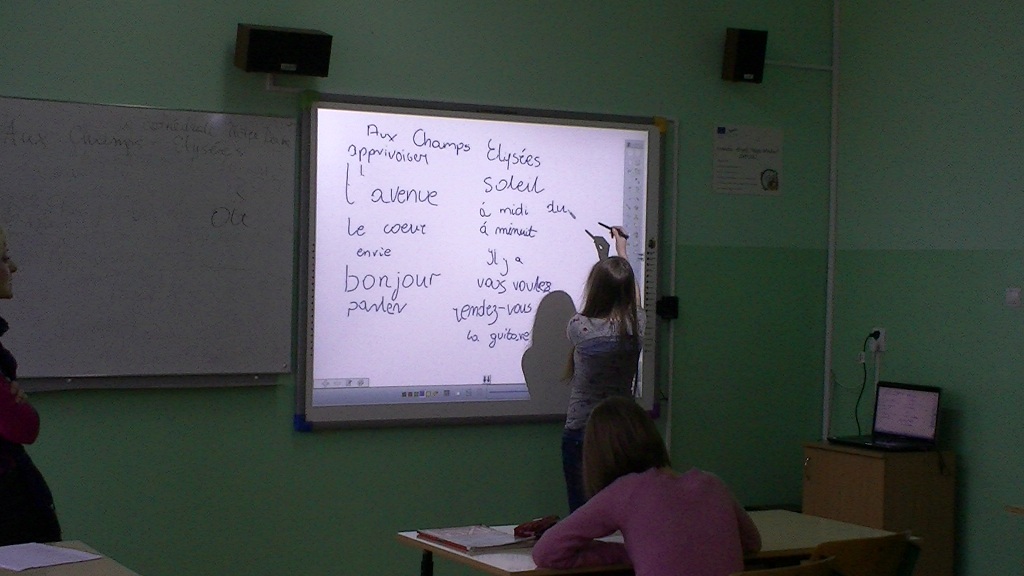 Aux Champs Elysées
Où
Aux Champs Elysées
apprivoiser
l'avenue
le coeur
envie
bonjour
parler
soleil
à midi du
à minuit
Il y a
vous voulez
rendez-vous
la guitare